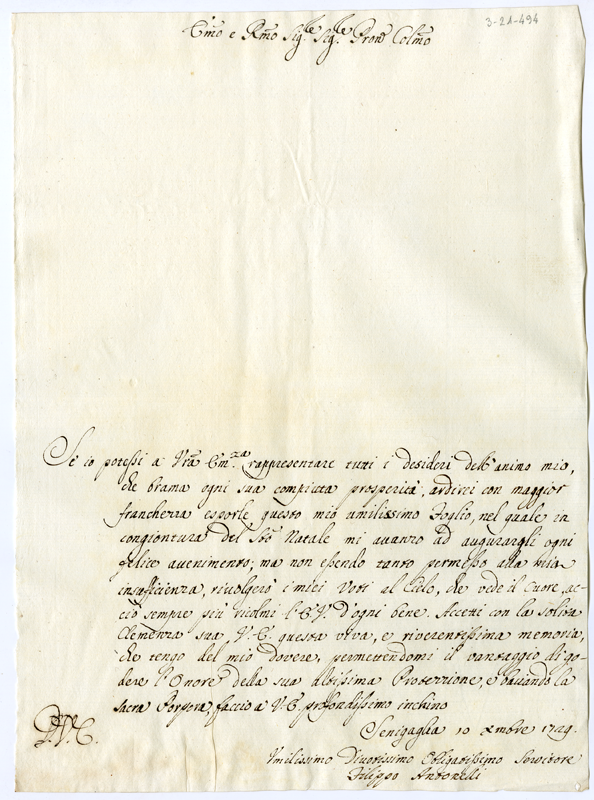 3-21-494
Emo e Rmo Sig.re Sig.re Pron Colmo
Se io potessi a Vra Em.za rappresentare tutti i desideri dell'animo mio,
che brama ogni sua compiuta prosperità, ardirei con maggior
franchezza esporle questo mio umilissimo Foglio, nel quale in
congiontura del Sto Natale mi avanzo ad augurargli ogni
felice avenimento; ma non essendo tanto permesso alla mia
insufficienza, rivolgerò i miei Voti al Cielo, che vede il Cuore, ac-
ciò sempre più ricolmi l'E.V. d'ogni bene. Accetti con la solita
Clemenza sua, V.E. questa viva, e riverentissima memoria,
che tengo del mio Dovere, permettendomi il vantaggio di go-
dere l'Onore della sua altissima Protezzione, e baciando la
sacra Porpora, faccio a V.E. profondissimo inchino
Senigaglia 10 Xmbre 1729.
Umilissimo Divotissimo Obligatissimo Servitore
Filippo Antonelli